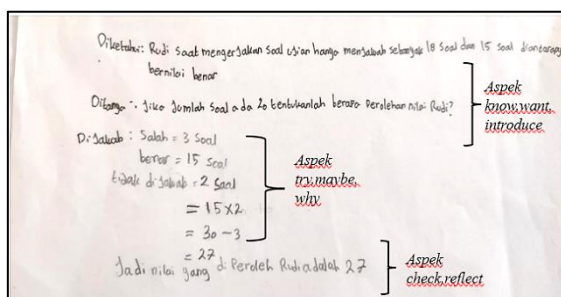 Diketahui: Rudi saat mengerjakan soal ujian hanya menjawab sebanyak 18 soal dan 15 soal diantaranya
bernilai benar
Ditanya: Jika jumlah soal ada 20 tentukanlah berapa perolehan nilai Rudi?
Aspek
know,want,
introduce
Dijawab: Salah = 3 soal
benar = 15 soal
tidak dijawab = 2 soal
= 15 x 2
= 30 - 3
= 27
Aspek
try,maybe,
why
Jadi nilai yang diperoleh Rudi adalah 27
Aspek
check,reflect